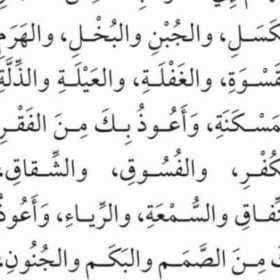 كَسَلِ، والجُبْنِ والبُخْلِ، والهَرَمِ
قَسْوَةِ، والغَفْلَةِ، والعَيْلَةِ والذِّلَّةِ
مَسْكَنَةِ، وَأَعُوذُ بِكَ مِنَ الفَقْرِ
كُفْرِ، والفُسُوقِ، والشِّقاقِ،
نِّفاقِ والسُّمْعَةِ، والرِّياءِ، وَأَعُوذُ
مِنَ الصَّمَمِ والبَكَمِ والجُنُونِ،